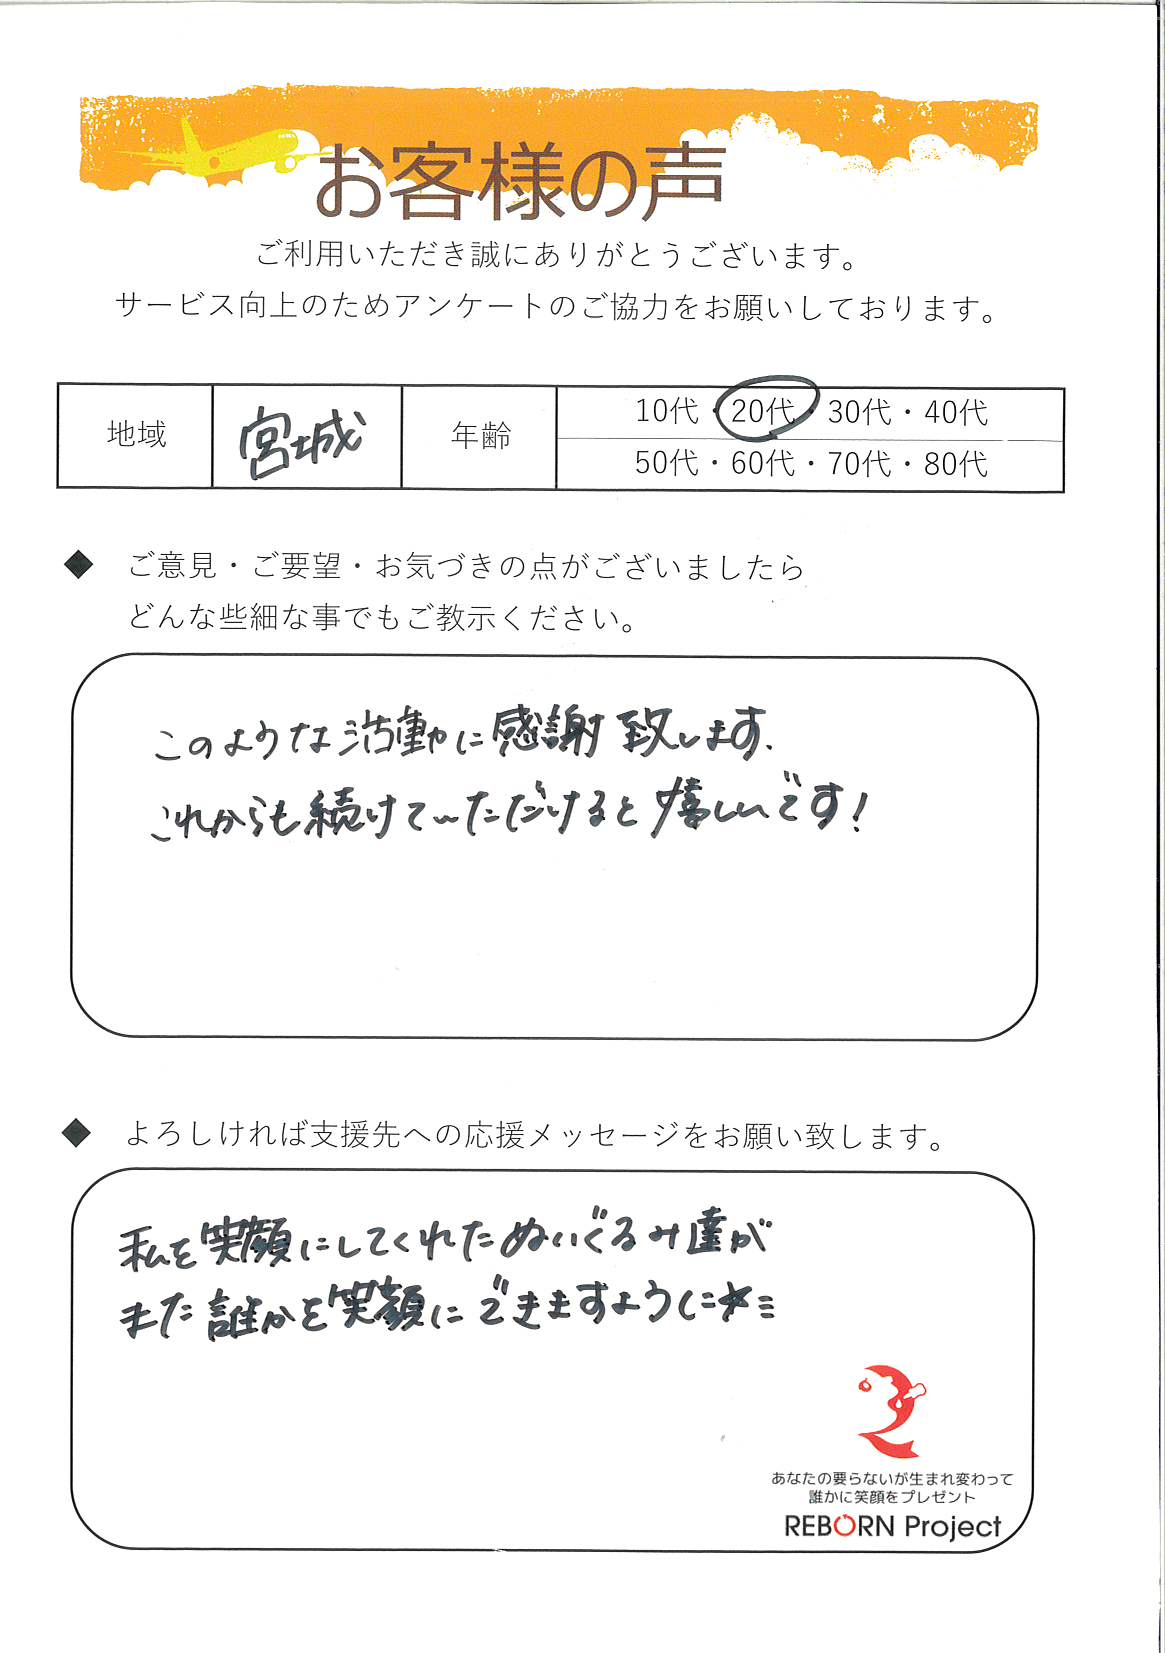 お客様の声
ご利用いただき誠にありがとうございます。
サービス向上のためアンケートのご協力をお願いしております。
地域 宮城 年齢 10代・20代・30代・40代
50代・60代・70代・80代
◆ ご意見・ご要望・お気づきの点がございましたら
どんな些細な事でもご教示ください。
このような活動に感謝致します。
これからも続けていただけると嬉しいです!
◆ よろしければ支援先への応援メッセージをお願い致します。
私を笑顔にしてくれたぬいぐるみ達が
また誰かを笑顔にできますように☆ミ
あなたの要らないが生まれ変わって
誰かに笑顔をプレゼント
REBORN Project